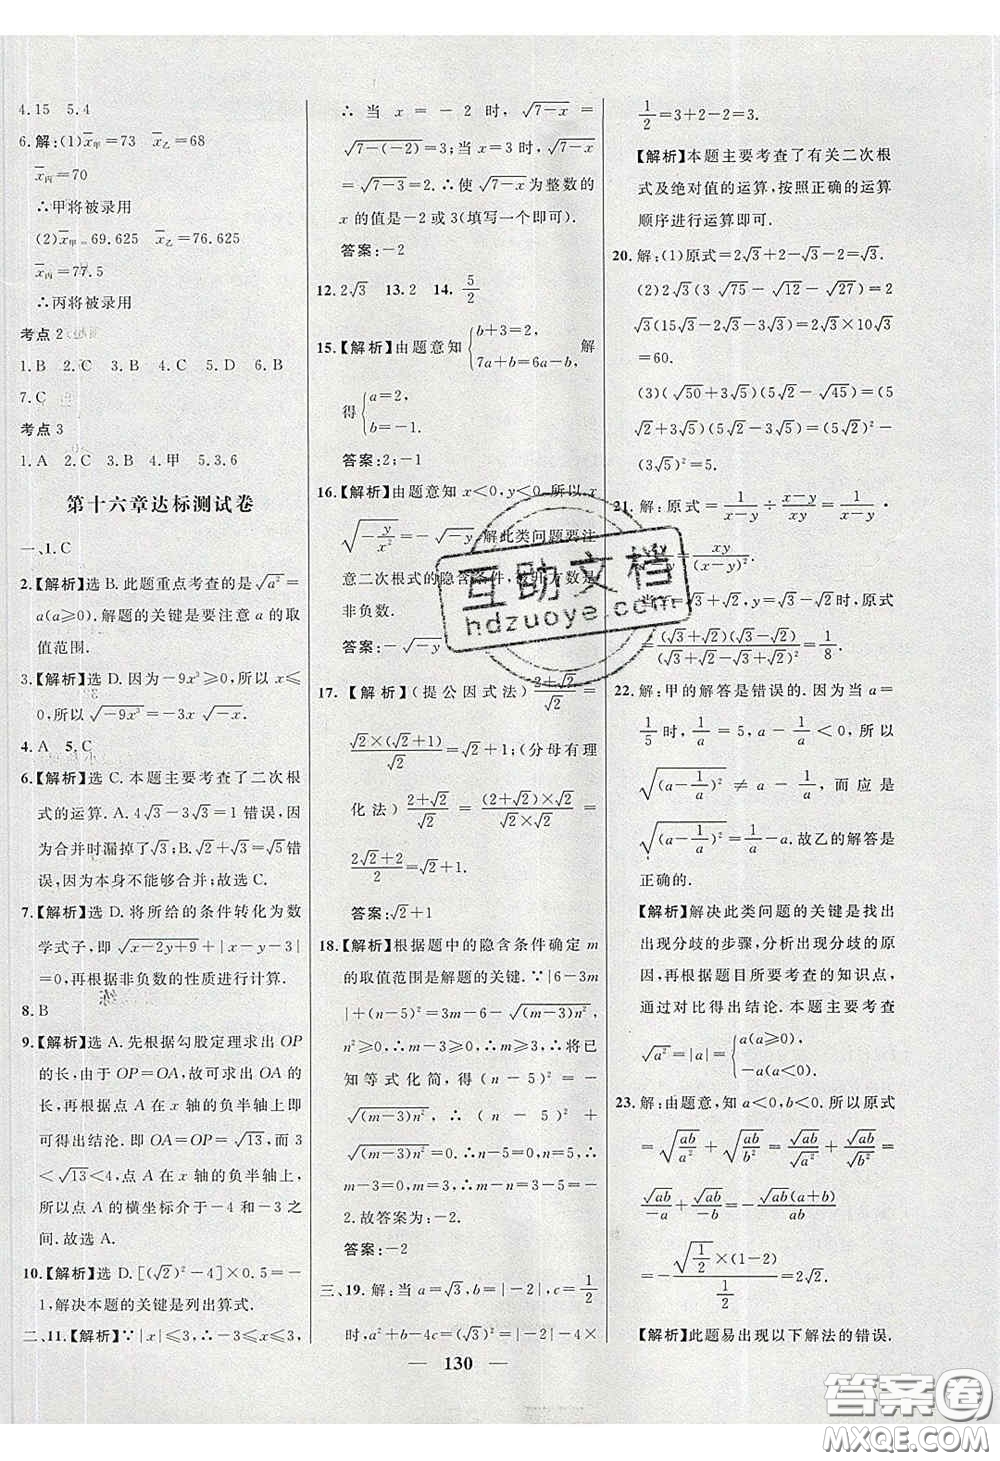 4.15 5.4
6.解:(1)x̄甲=73 x̄乙=68
x̄丙=70
∴甲将被录用
(2)x̄甲=69.625 x̄乙=76.625
x̄丙=77.5
∴丙将被录用
考点2
1.B 2.C 3.B 4.C 5.D 6.B
7.C
考点3
1.A 2.C 3.B 4.甲 5.3.6
第十六章达标测试卷
一、1.C
2.【解析】选 B. 此题重点考查的是√a²=
a(a≥0). 解题的关键是要注意 a 的取
值范围.
3.【解析】选 D. 因为-9x³≥0,所以 x≤
0,所以√(-9x³)=-3x√(-x).
4.A 5.C
6.【解析】选 C. 本题主要考查了二次根
式的运算. A. 4√3-3√3=1 错误,因
为合并时漏掉了√3;B. √2+√3=√5错
误,因为本身不能够合并;故选 C.
7.【解析】选 D. 将所给的条件转化为数
学式子,即 √(x-2y+9)+|x-y-3|
=0,再根据非负数的性质进行计算.
8.B
9.【解析】选 A. 先根据勾股定理求出 OP
的长,由于 OP=OA,故可求出 OA 的
长,再根据点 A 在 x 轴的负半轴上即
可得出结论. 即 OA=OP=√13,而 3
<√13<4,点 A 在 x 轴的负半轴上,
所以点 A 的横坐标介于-4 和-3 之
间. 故选 A.
10.【解析】选 D. [(√2)²-4]×0.5=-
1,解决本题的关键是列出算式.
二、11.【解析】∵|x|≤3,∴-3≤x≤3,
∴ 当 x = - 2 时, √(7-x) =
√(7-(-2))=3;当 x=3 时,√(7-x)
=√(7-3)=2. ∴使√(7-x)为整数的
x 的值是-2 或 3(填写一个即可).
答案:-2
12.2√3 13.2 14.5/2
15.【解析】由题意知{b+3=2, 7a+b=6a+b, 解
得{a=2, b=-1.
答案:2;-1
16.【解析】由题意知 x<0,y<0. 所以 x
√(-y/x²)=-√(-y). 解此类问题要注
意二次根式的隐含条件,被开方数是
非负数.
答案:-√(-y)
17.【解析】(提公因式法)(2+√2)/√2=
√2×(√2+1)/√2=√2+1;(分母有理
化法)(2+√2)/√2=(2+√2)×√2/(√2×√2)=
(2√2+2)/2=√2+1.
答案:√2+1
18.【解析】根据题中的隐含条件确定 m
的取值范围是解题的关键. ∵|6-3m
|+(n-5)²=3m-6-√((m-3)n²),
n²≥0,∴m-3≥0,∴m≥3,∴将已
知等式化简,得 (n-5)² = -
√((m-3)n²), ∴ (n-5)² +
√((m-3)n²)=0. ∴n-5=0,m-3
=0,∴n=5,m=3,∴m-n=3-5=-
2. 故答案为:-2.
答案:-2
三、19.解:当 a=√3,b=|-2|,c=1/2
时,a²+b-4c=(√3)²+|-2|-4×
1/2=3+2-2=3.
【解析】本题主要考查了有关二次根
式及绝对值的运算,按照正确的运算
顺序进行运算即可.
20.解:(1)原式=2√3+2-2=2√3.
(2)2√3(√75-√12-√27)=
2√3(5√3-2√3-3√3)=2√3×10√3
=60.
(3)(√50+3√5)(5√2-√45)=(5
√2+3√5)(5√2-3√5)=(5√2)²-
(3√5)²=5.
21.解:原式=1/(x-y)÷(x-y)/xy=1/(x-y)·
xy/(x-y)=xy/(x-y)².
x=√3+√2,y=√3-√2时,原式
=(√3+√2)(√3-√2)/(√3+√2-√3+√2)²=1/8.
22.解:甲的解答是错误的. 因为当 a=
1/5时,1/a=5,a-1/a<0,所以
√((a-1/a)²)≠a-1/a,而应是
√((a-1/a)²)=1/a-a. 故乙的解答是
正确的.
【解析】解决此类问题的关键是找出
出现分歧的步骤,分析出现分歧的原
因,再根据题目所要考查的知识点,
通过对比得出结论. 本题主要考查
√a²=|a|={a(a≥0) -a(a<0).
23.解:由题意,知 a<0,b<0. 所以原式
=√(ab/a²)+√(ab/b²)=√ab/√a²+√ab/√b²=
√ab/-a+√ab/-b=-√ab(a+b)/ab
=-√(1/2)×(1-2)... =2√2.
【解析】此题易出现以下解法的错误.
— 130 —
互助文档
hdzuoye.com
答案圈
MXQE.COM